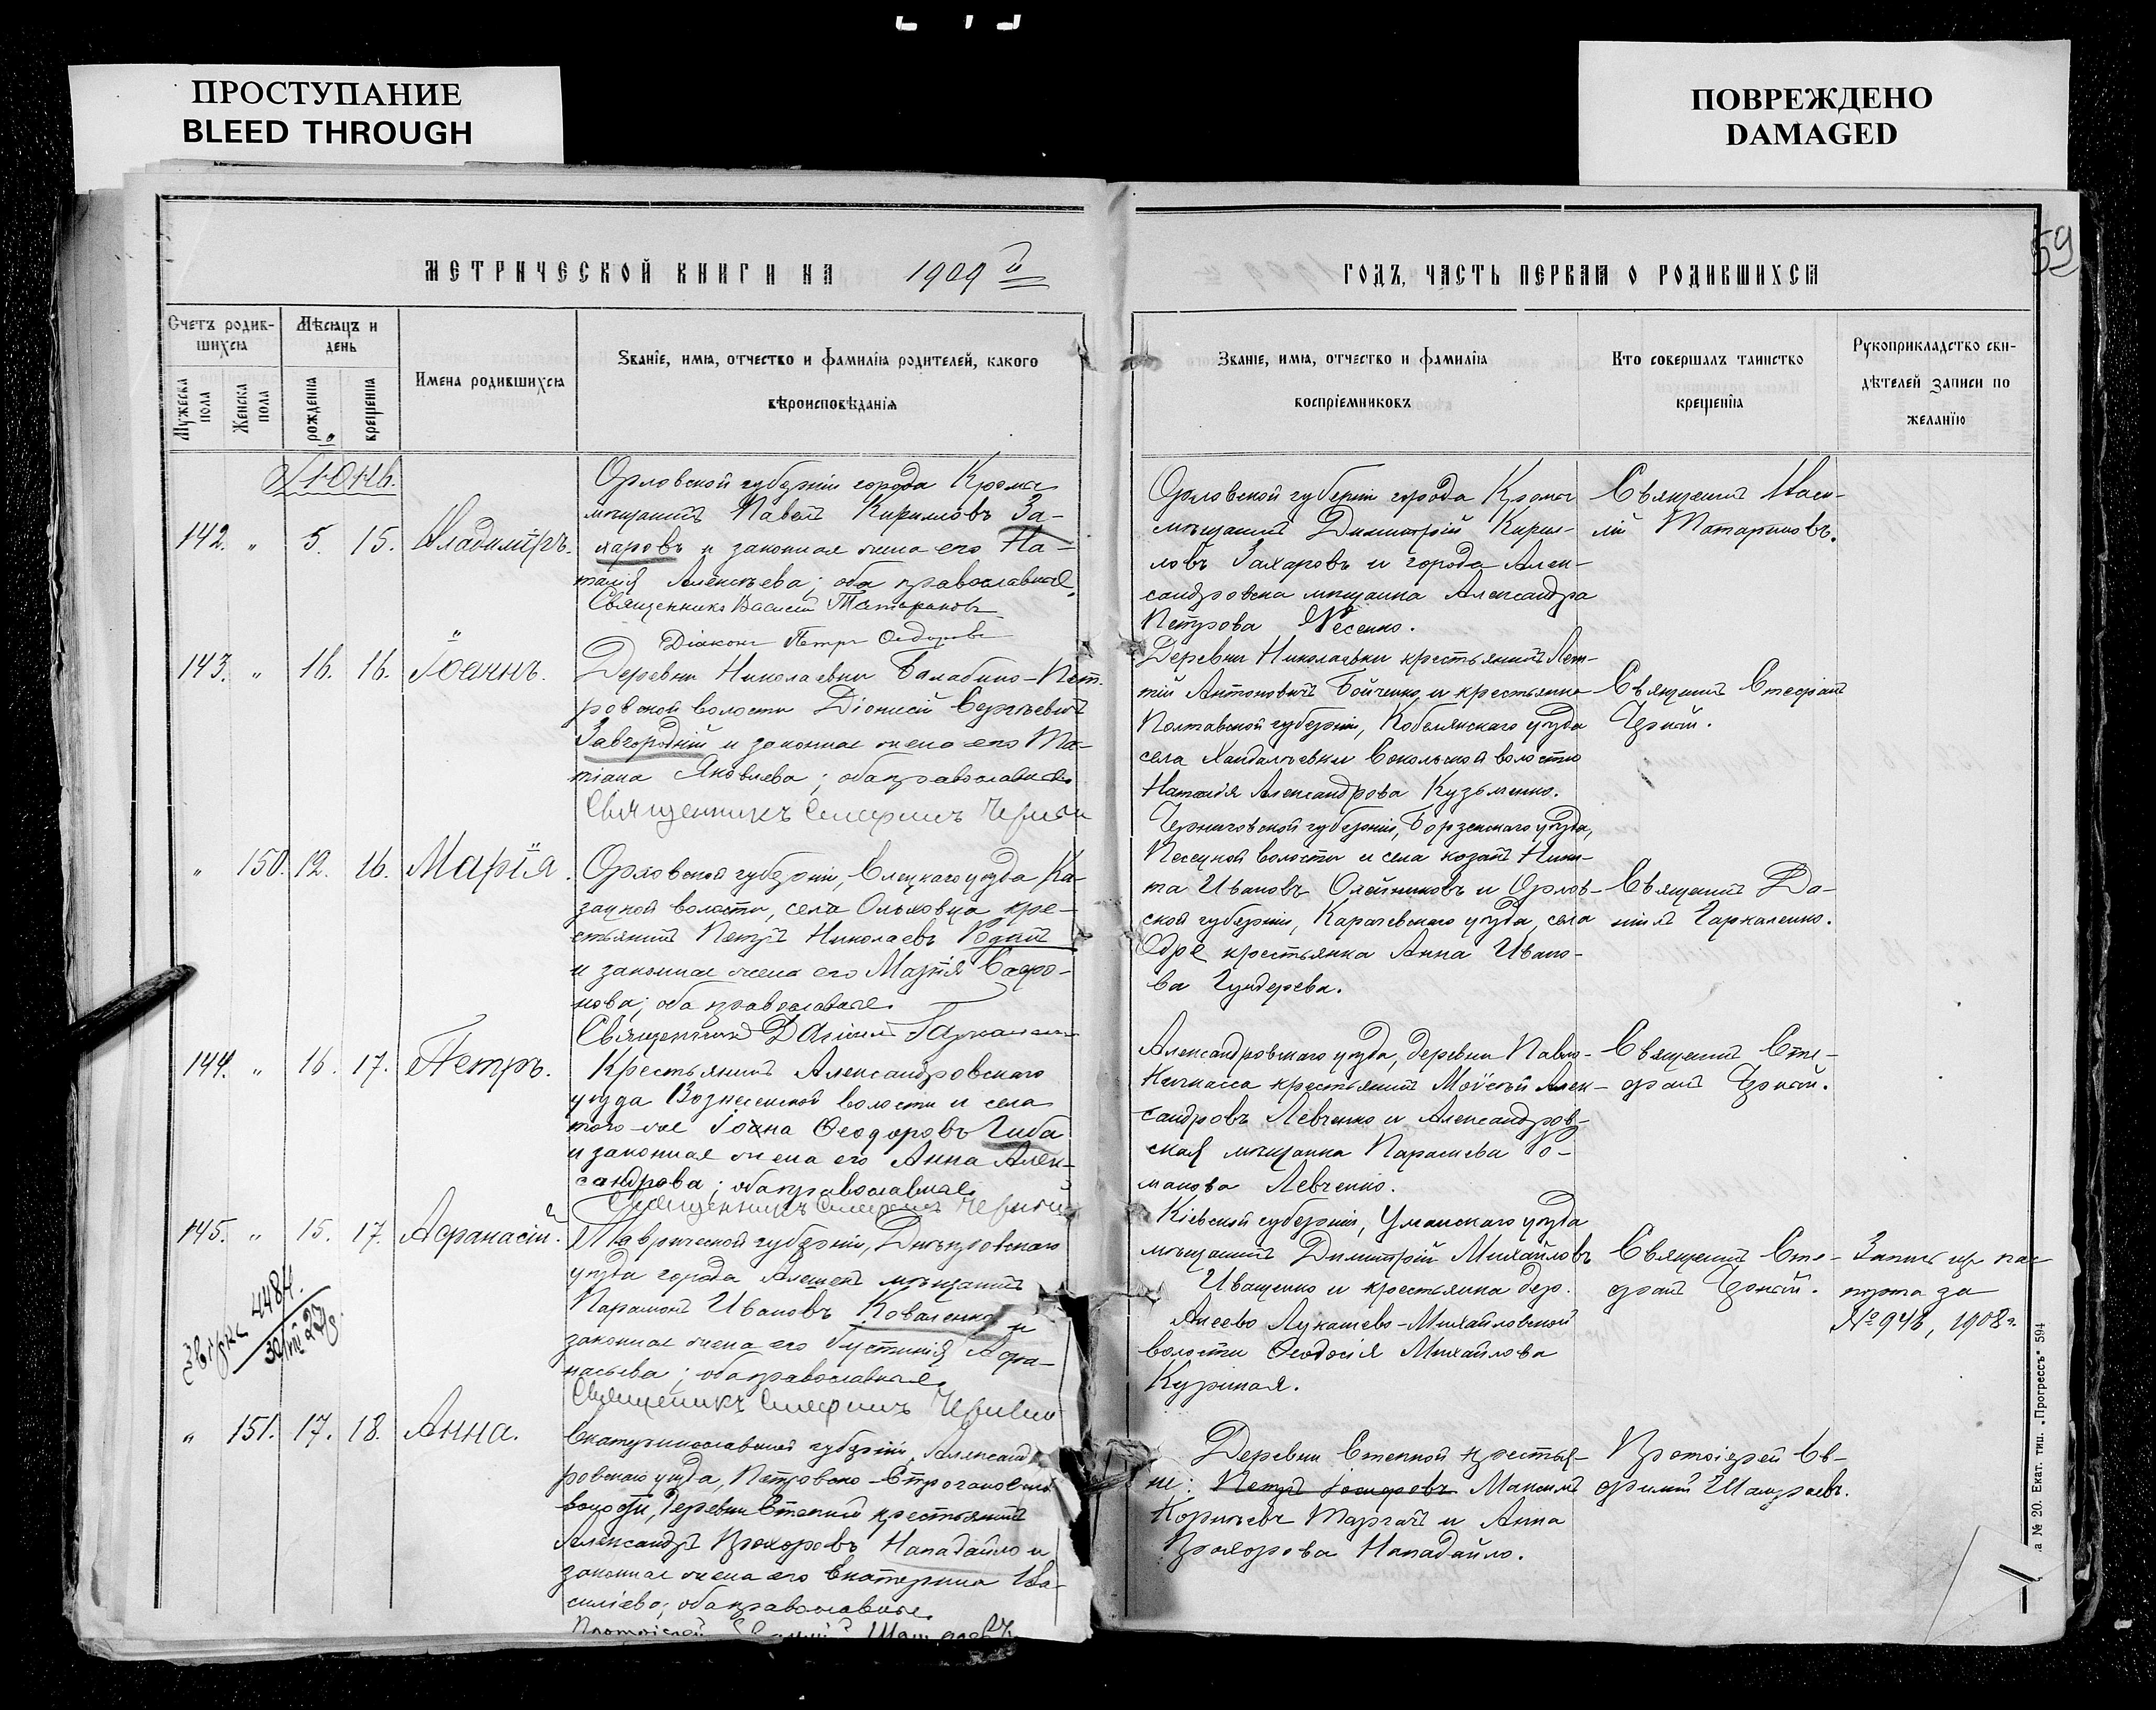 ПРОСТУПАНИЕ
BLEED THROUGH
ПОВРЕЖДЕНО
DAMAGED
59
МЕТРИЧЕСКОЙ КНИГИ НА 1909 й
ГОДЪ, ЧАСТЬ ПЕРВАЯ О РОДИВШИХСЯ
Счетъ родив-
шихся
Мужеска пола
Женска пола
Мѣсяцъ и
день
рожденія
крещенія
Имена родившихся
Званіе, имя, отчество и фамилія родителей, какого
вѣроисповѣданія
Званіе, имя, отчество и фамилія
воспріемниковъ
Кто совершалъ таинство
крещенія
Рукоприкладство сви-
дѣтелей записи по
желанію
Іюнь.
142. " 5. 15. Владиміръ.
Орловской губерніи города Кромъ
мѣщанинъ Павелъ Кирилловъ За-
харовъ и законная жена его На-
талія Алексѣева; оба православные.
Священникъ Василій Татариновъ
Діаконъ Петръ Ѳедоровъ
Орловской губерніи города Кромъ
мѣщанинъ Димитрій Кирил-
ловъ Захаровъ и города Алек-
сандровска мѣщанка Александра
Петрова
Священникъ Васи-
лій Татариновъ.
143. " 16. 16. Іоаннъ.
Деревни Николаевки Балабино-Пет-
ровской волости Діонисій Сергѣевичъ
Завгородній и законная жена его Та-
тіана Яковлева; оба православные
Священникъ Стефанъ Черный
Деревни Николаевки крестьянинъ
Антоновичъ Бойченко и крестьянка
Полтавской губерніи, Кобелякскаго уѣзда
села Хандалѣевки Сокольской волости
Наталія Александрова Кузьменко.
Священникъ Стефанъ
Черный.
" 150. 12. 16. Марія.
Орловской губерніи, Елецкаго уѣзда Ка-
зацкой волости, села Ольховца кре-
стьянинъ Петръ Николаевъ Родинъ
и законная жена его Марія Сафро-
нова; оба православные.
Священникъ Даніилъ Гаркаленко
Черниговской губерніи, Борзенскаго уѣзда,
волости и села козакъ Ники-
та Ивановъ Олейниковъ и Орлов-
ской губерніи, Карачевскаго уѣзда, села
Одре крестьянка Анна Ивано-
ва Гундерева.
Священникъ Да-
ніилъ Гаркаленко.
144. " 16. 17. Петръ.
Крестьянинъ Александровскаго
уѣзда Вознесенской волости и села
того-же Іоанна Ѳеодоровъ Гиба
и законная жена его Анна Алек-
сандрова; оба православные.
Священникъ Стефанъ Черный
Александровскаго уѣзда, деревни Павло-
Кичкасса крестьянинъ Моѵсей Алек-
сандровъ Левченко и Александров-
ская мѣщанка Параскева Ро-
манова Левченко.
Священникъ Сте-
фанъ Черный.
145. " 15. 17. Аѳанасій.
4484.
Таврической губерніи, Днѣпровскаго
уѣзда города Алешекъ мѣщанинъ
Парамонъ Ивановъ Коваленко и
законная жена его Іустинія Аѳа-
насьева; оба православные.
Священникъ Стефанъ Черный
Кіевской губерніи, Уманскаго уѣзда
мѣщанинъ Димитрій Михайловъ
Иващенко и крестьянка дер.
Лукашево-Михайловской
волости Ѳеодосія Михайлова
Куриная.
Священникъ Сте-
фанъ Черный.
Запись пас
порта за
№ 946, 1908 г.
" 151. 17. 18. Анна.
Екатеринославской губерніи, Александ
ровскаго уѣзда, Петровско-Строгановской
волости, деревни Степной крестьянинъ
Александръ Прохоровъ Нападайло и
законная жена его Екатерина Ва-
силіева; оба православные.
Протоіерей
Деревни Степной крестья-
не: Петръ Іосифовъ Максимъ
Корнѣевъ Таргачъ и Анна
Прохорова Нападайло.
Протоіерей Ев-
фимій
а № 20. Екат. тип. „Прогрессъ" 594